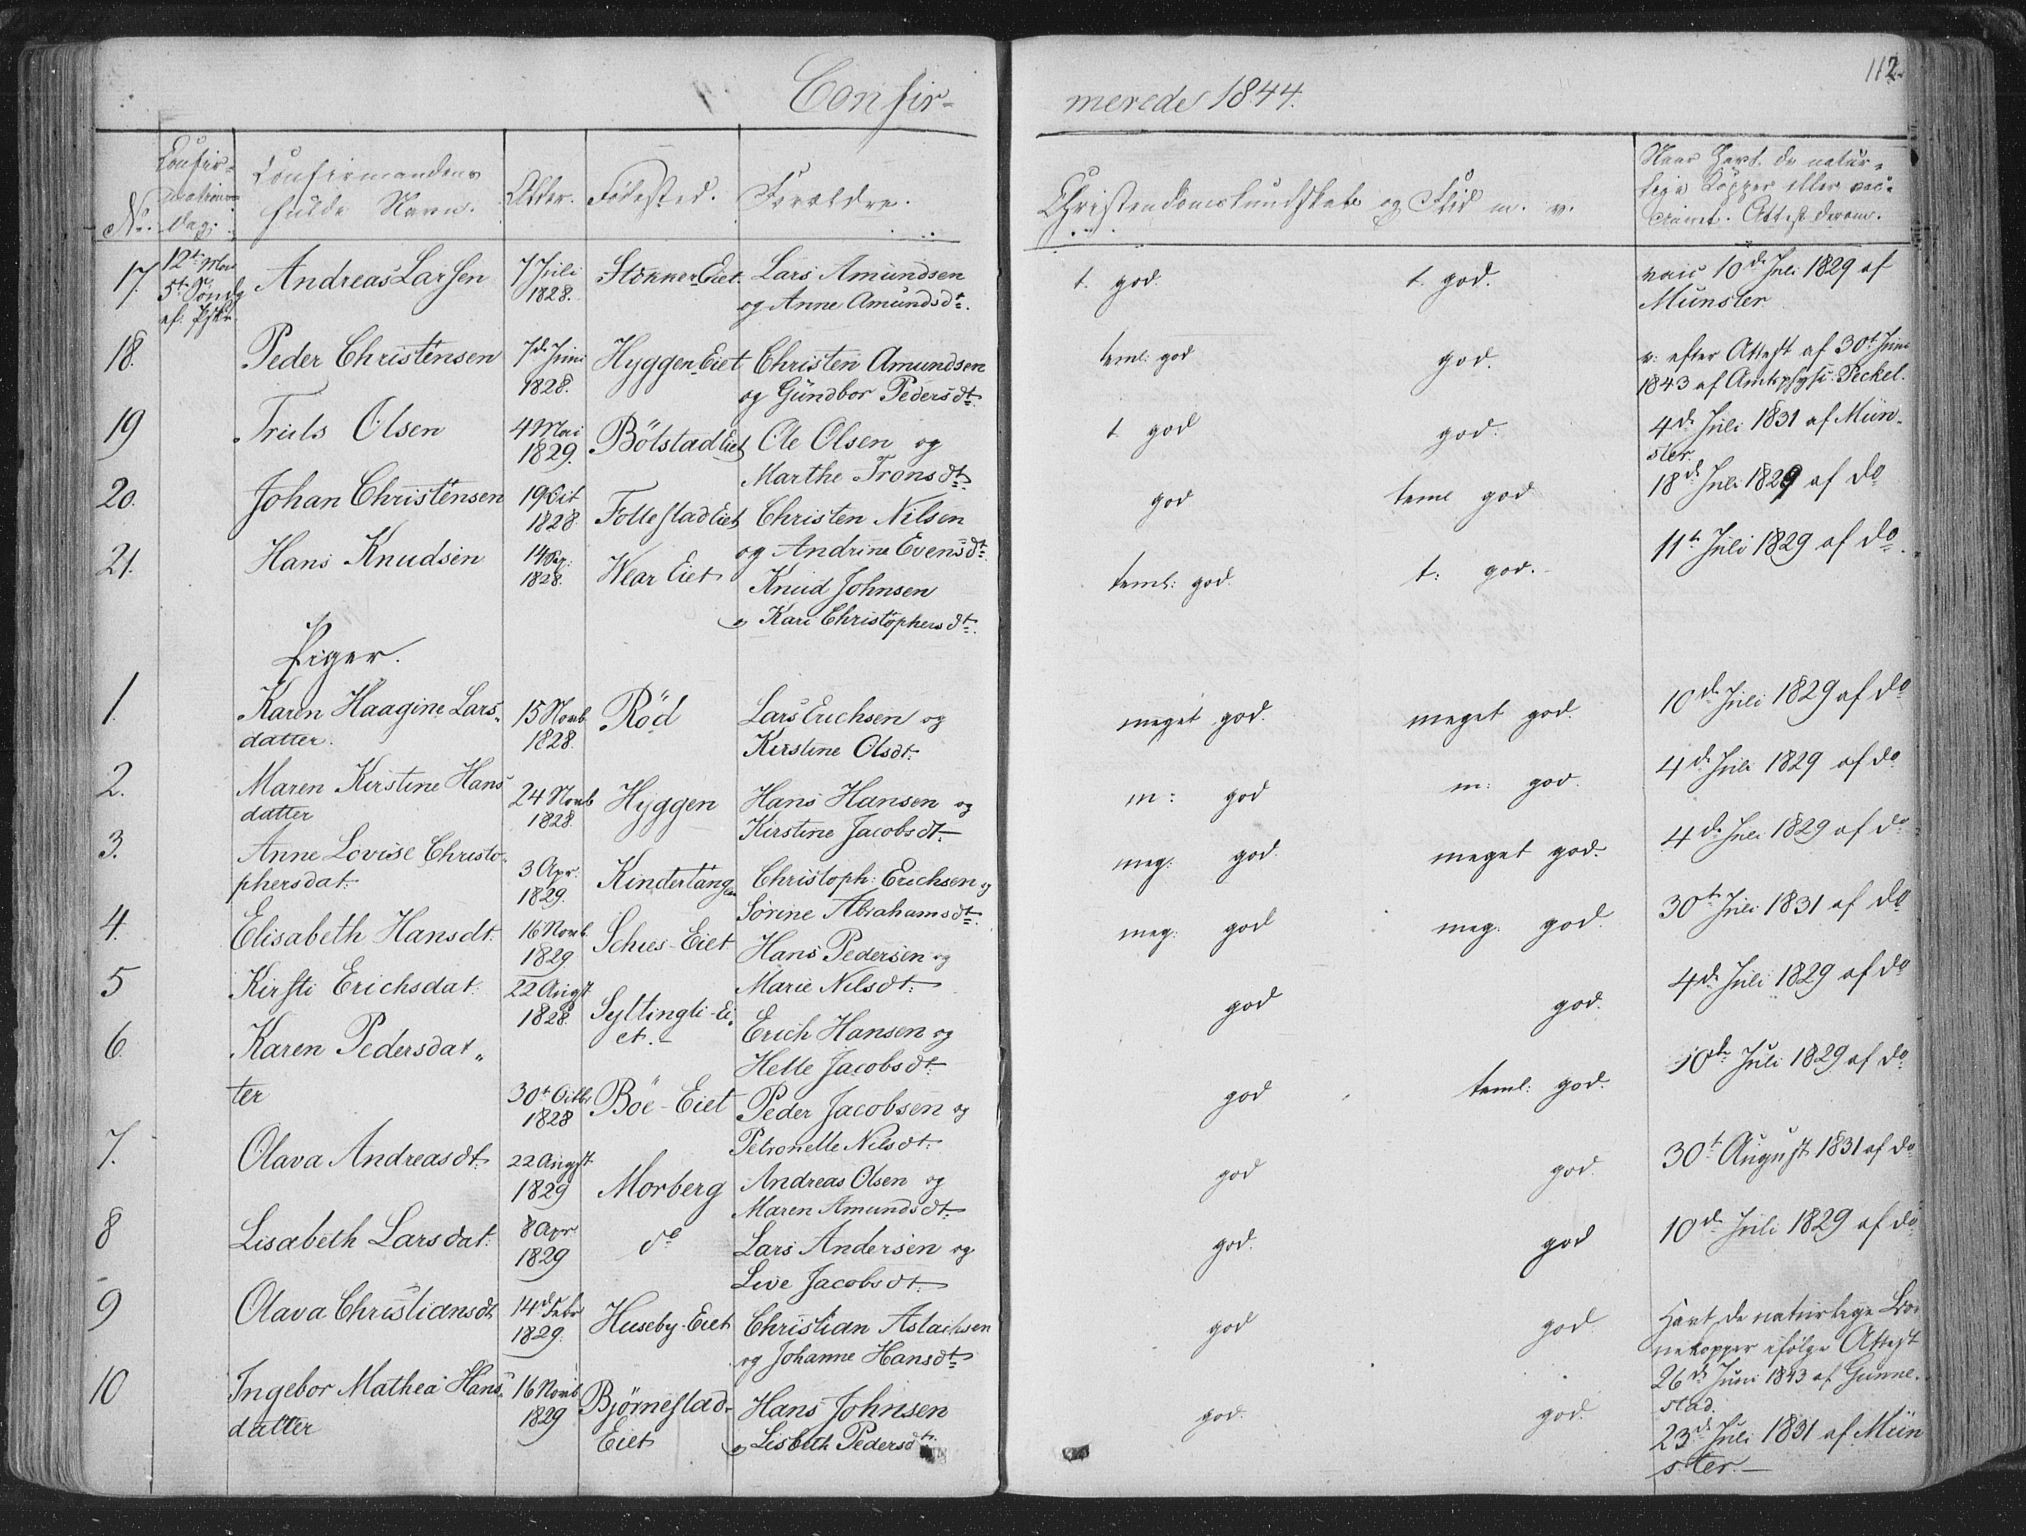 Confir-
merede 1844.
112
No.
Confir-
mations-
Dag.
Confirmandens
fulde Navn.
Alder.
Fødested.
Forældre.
Christendomskundskab og Flid m. v.
Naar havt de natur-
lige Kopper eller vac-
cineret. Attest derom.
17. 12te Mai
5te Sondg
ef: Pske.
Andreas Larsen
7 Juli
1828.
Stokker-Eiet.
Lars Amundsen
og Anne Amundsdt.
t. god.
t. god.
vacc 10de Juli 1829 af
Münster
18. Peder Christensen
7de Juni
1828.
Hyggen-Eiet
Christen Amundsen
og Gundbor Pedersdt.
teml: god
god.
v: efter Attest af 30te Juni
1843 af Amtsphysi: Peckel.
19 Truls Olsen
4 Mai
1829.
Bölstad Eiet
Ole Olsen og
Marthe Tronsdt.
t. god
god.
4de Juli 1831 af Mün-
ster.
20. Johan Christensen
19 Oct
1828
Follestad Eiet
Christen Nilsen
og Andrine Evensdt.
god
teml god
18de Juli 1829 af do
21. Hans Knudsen
1828.
Eiet
Knud Johnsen
o Kari Christophersdt.
teml: god.
t: god.
11te Juli 1829 af do.
Piger.
1. Karen Haagine Lars-
datter.
15 Novb
1828.
Röd
Lars Erichsen og
Kirstine Olsdt.
meget god.
meget god.
10de Juli 1829 af do
2. Maren Kirstine Hans
datter
24 Novb
1828.
Hyggen
Hans Hansen og
Kirstine Jacobsdt.
m: god
m: god.
4de Juli 1829 af do
3. Anne Lovise Christo-
phersdat:
3 Apr.
1829.
Kindertangen
Christoph: Erichsen og
Sörine Abrahamsdt.
meg: god.
meget god.
4de Juli 1829 af do
4. Elisabeth Hansdt.
16 Novb.
1829
-Eiet
Hans Pedersen og
Marie Nilsdt.
meg: god
meg. god.
30te Juli 1831 af do
5 Kirsti Erichsdat.
22 Augst
1828.
Syltingli-Ei-
et.
Erich Hansen og
Helle Jacobsdt.
god
god.
4de Juli 1829 af do
6. Karen Pedersdat-
ter
30te Octbr
1828
Böe-Eiet
Peder Jacobsen og
Petronelle Nilsdt.
god
teml: god.
10de Juli 1829 af do
7. Olava Andreasdt.
22 Augst
1829
Morberg
Andreas Olsen og
Maren Amundsdt.
god
god.
30te August 1831 af do
8 Lisabeth Larsdat.
8 Apr
1829
do
Lars Andersen og
Live Jacobsdt.
god.
god
10de Juli 1829 af do
9 Olava Christiansdt
14de Febr
1829.
Huseby-Eiet
Christian Aslachsen
og Johanne Hansdt.
god
god.
Havt de naturlige Bör-
nekopper ifölge Attest
26de Juni 1843 af Gunne-
stad.
10 Ingebor Mathea Hans-
datter
16 Novb
1829
Björnestad-
Eiet
Hans Johnsen
o Lisbeth Pedersdt.
god.
god.
23de Juli 1831 af Mün
ster.